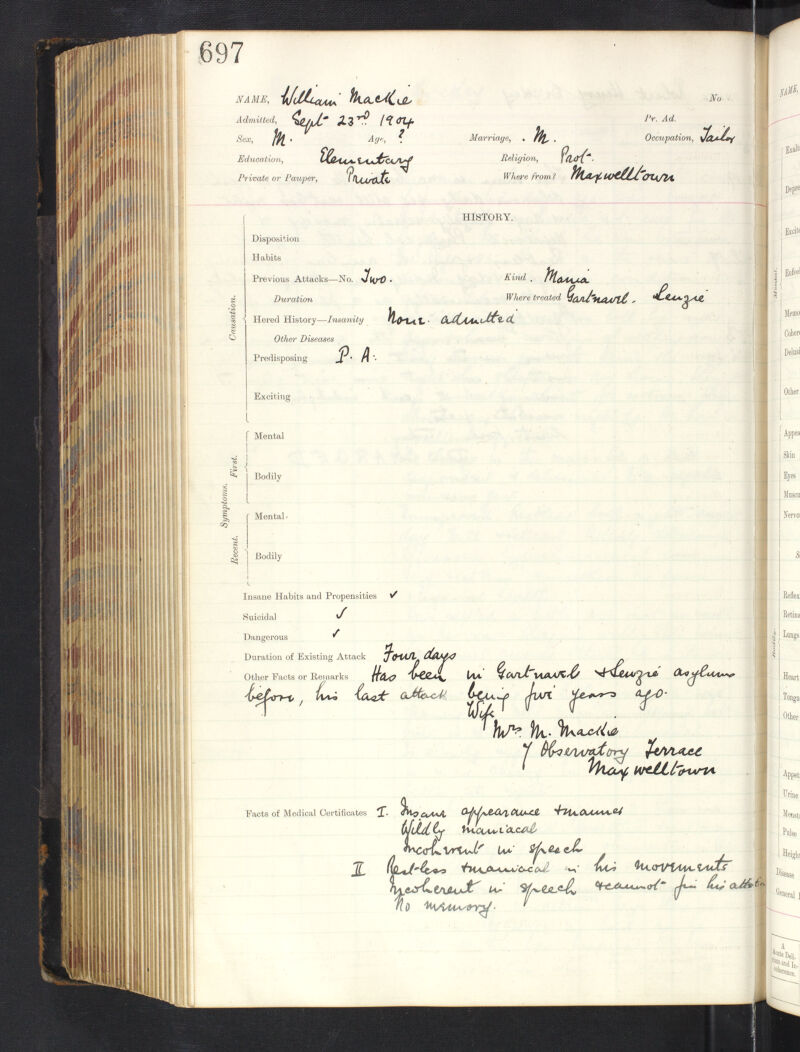 697
NAME, William Mackie No
Admitted, Sept 23rd 1904 Pr. Ad.
Sex, M. Age, ? Marriage, M. Occupation, Tailor
Education, Elementary Religion, Prot.
Private or Pauper, Private Where from? Maxwelltown
HISTORY.
Disposition
Habits
Previous Attacks—No. Two. Kind. Mania
Duration Where treated Gartnavel. Lenzie
Hered History—Insanity None admitted
Other Diseases
Predisposing P. A.
Exciting
Causation.
Mental
Bodily
First.
Symptoms.
Mental
Bodily
Recent.
Insane Habits and Propensities ✓
Suicidal ✓
Dangerous ✓
Duration of Existing Attack Four days
Other Facts or Remarks Has been in Gartnavel & Lenzie asylums
before, his last attack being five years ago.
Wife
Mrs. M. Mackie
7 Observatory Terrace
Maxwelltown
Facts of Medical Certificates I. Insane appearance & manner
Wildly maniacal
Incoherent in speech
II Restless & maniacal in his movements
Incoherent in speech & cannot fix his attention
No memory.
NAME,
Mental.
Bodily.
Skin
Eyes
Lungs
Heart
Other
Urine
Pulse
Disease
A
Acute Deli-